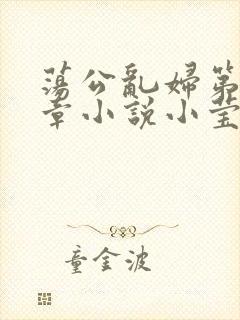 蕩公亂婦第
章小說小瑩
童金波